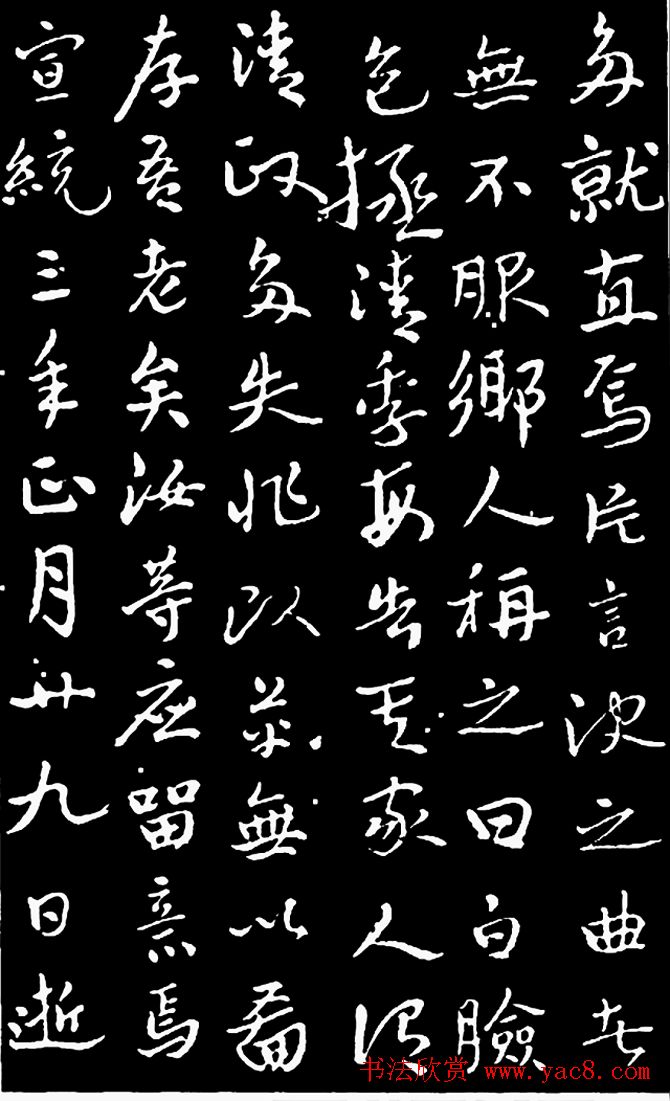 多就直焉片言決之曲者
無不服鄉人稱之曰白臉
包拯清季每告其家人謂
清政多失非改革無以圖
存吾老矣汝等應留意焉
宣統三年正月廿九日逝
书法欣赏 www.yac8.com